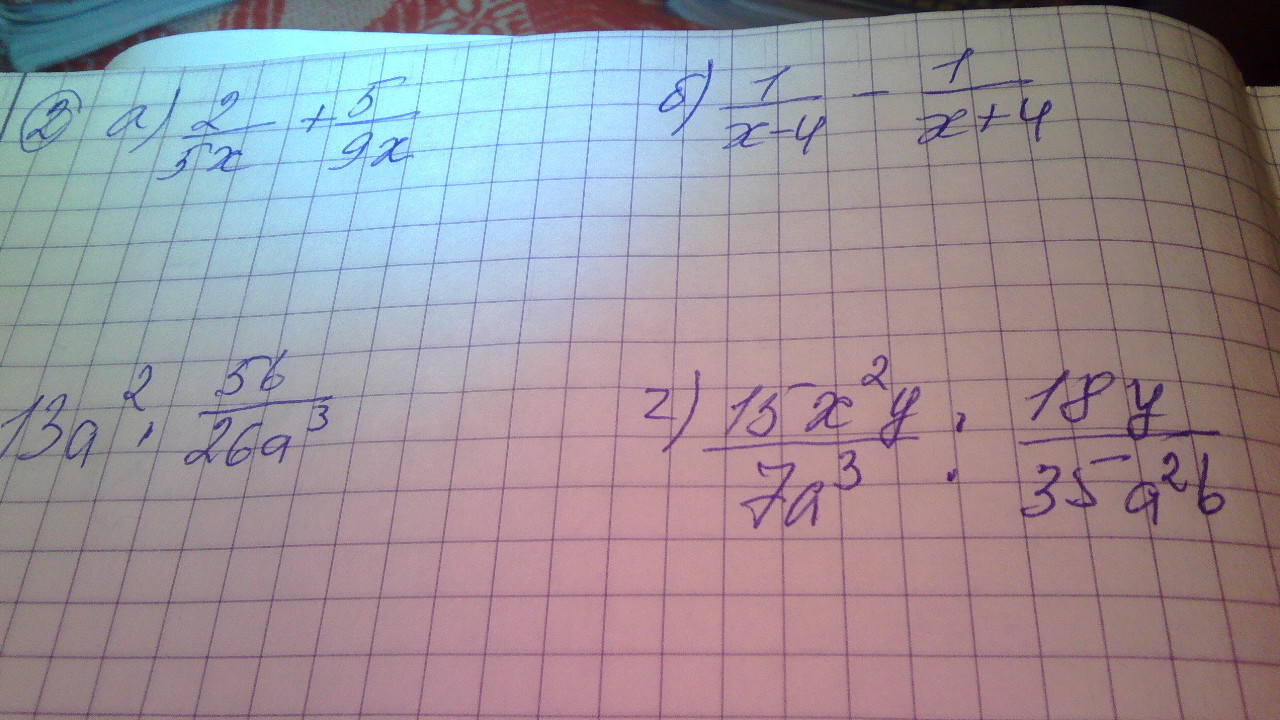 ② а) 2/5x + 5/9x б) 1/x-4 - 1/x+4
13a² · 5b/26a³ г) 15x²y/7a³ : 18y/35a²b